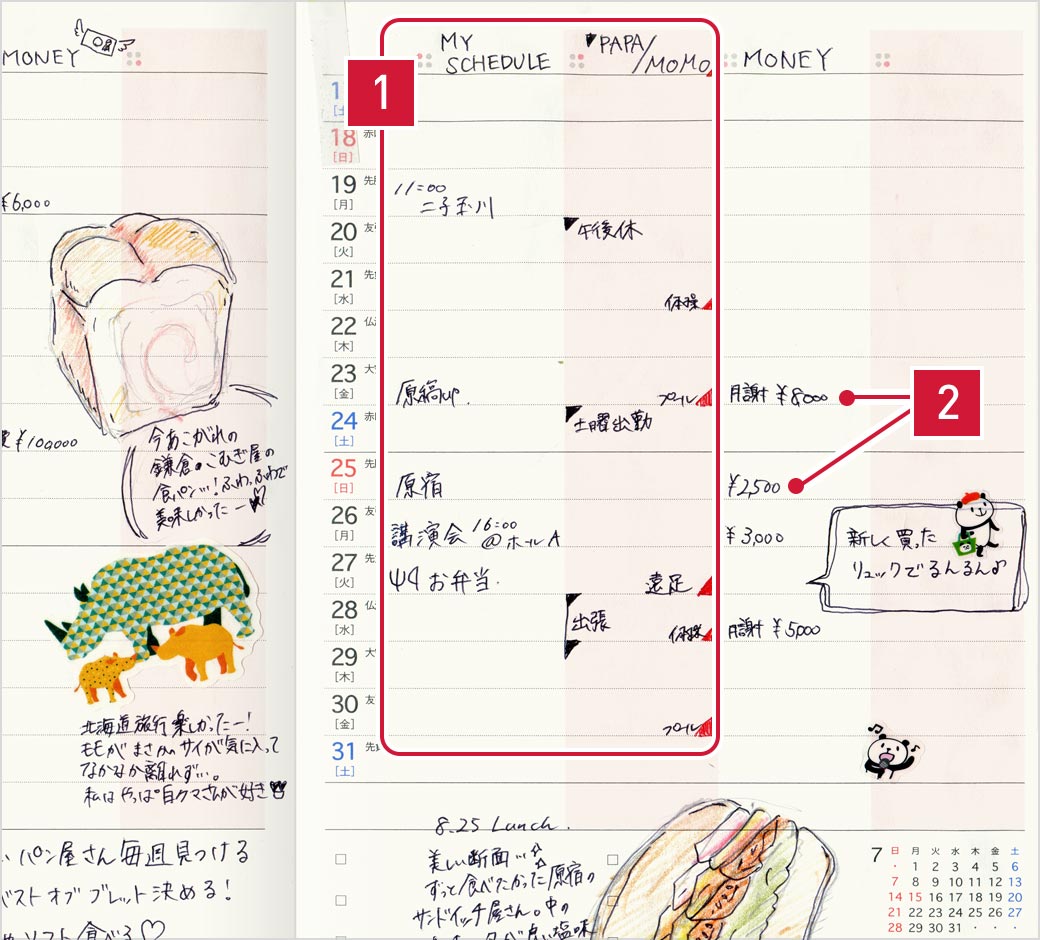 MONEY
¥6,000
¥100,000
今あこがれの
鎌倉のこむぎ屋の
食パン…!ふわっふわで
美味しかったー
北海道旅行楽しかったー!
モモがまさかのサイが気に入って
なかなか離れず…。
私はやっぱ白クマさんが好き
パン屋さん毎週見つける
ベストオブブレット決める!
MY
SCHEDULE
PAPA/
MOMO
MONEY
1
18
[日]
19
[月]
11:00
二子玉川
20
[火]
午後休
21
[水]
体操
22
[木]
23
[金]
原稿up.
プール
月謝 ¥8000
2
24
[土]
土曜出勤
25
[日]
原宿
¥2,500
26
[月]
講演会 16:00
@ホールA
¥3,000
新しく買った
リュックでるんるん♪
27
[火]
お弁当.
遠足
28
[水]
出張
体操
月謝 ¥5,000
29
[木]
30
[金]
プール
31
[土]
8.25 Lunch.
美しい断面…☆
ずっと食べたかった原宿の
サンドイッチ屋さん。中の
7 日 月 火 水 木 金 土
・ 1 2 3 4 5 6
7 8 9 10 11 12 13
14 15 16 17 18 19 20
21 22 23 24 25 26 27
28 29 30 31 ・ ・ ・